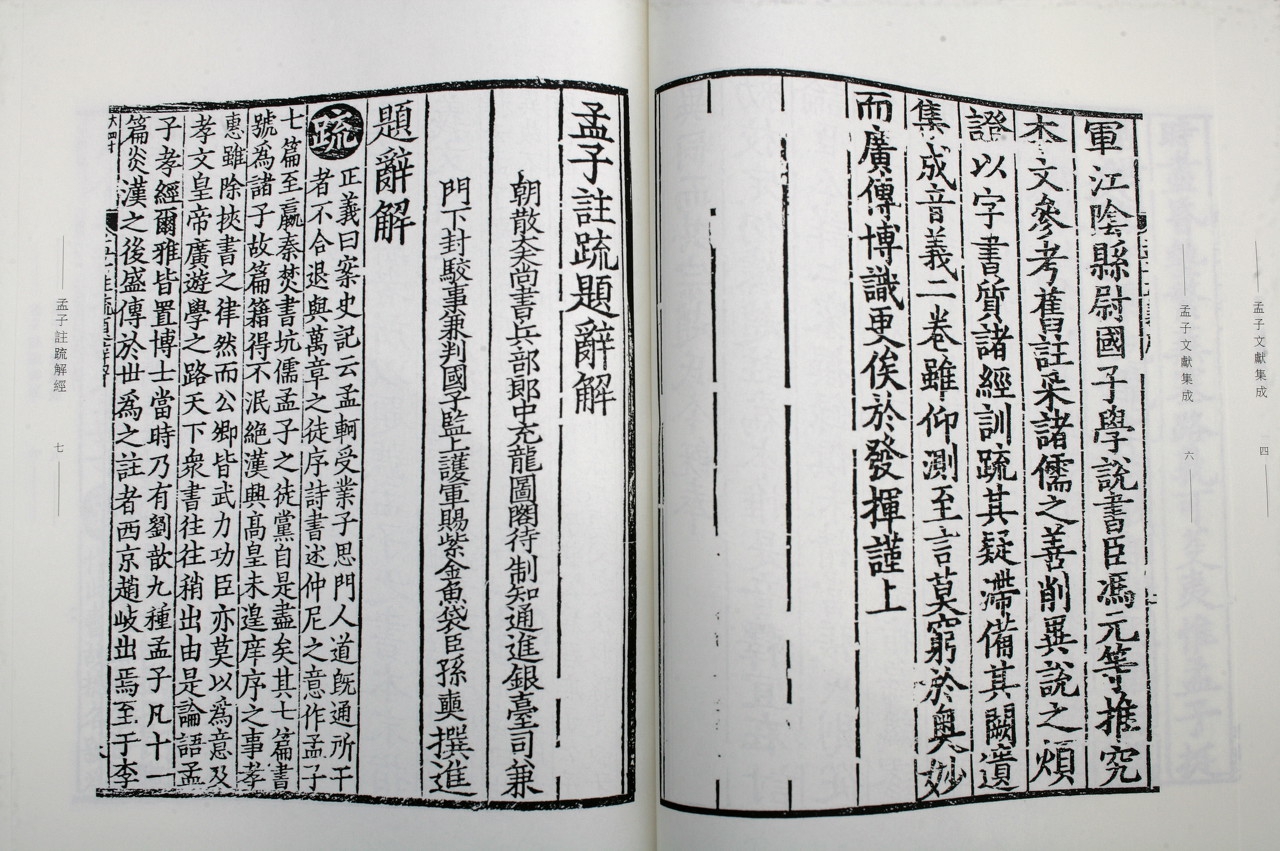 孟子文獻集成
四
孟子文獻集成
六
軍江陰縣尉國子學說書臣馮元等推究
本文參考舊註采諸儒之善削異說之煩
證以字書質諸經訓疏其疑滯備其闕遺
集成音義二卷雖仰測至言莫窮於奧妙
而廣傳博識更俟於發揮謹上
孟子註疏題辭解
朝散大夫尚書兵部郎中充龍圖閣待制知通進銀臺司兼
門下封駁事兼判國子監上護軍賜紫金魚袋臣孫奭撰進
題辭解
疏
正義曰案史記云孟軻受業子思門人道旣通所干
者不合退與萬章之徒序詩書述仲尼之意作孟子
七篇至嬴秦焚書坑儒孟子之徒黨自是盡矣其七篇書
號爲諸子故篇籍得不泯絕漢興高皇未遑庠序之事孝
惠雖除挾書之律然而公卿皆武力功臣亦莫以爲意及
孝文皇帝廣遊學之路天下衆書往往稍出由是論語孟
子孝經爾雅皆置博士當時乃有劉歆九種孟子凡十一
篇炎漢之後盛傳於世爲之註者西京趙岐出焉至于李
孟子註疏解經
七